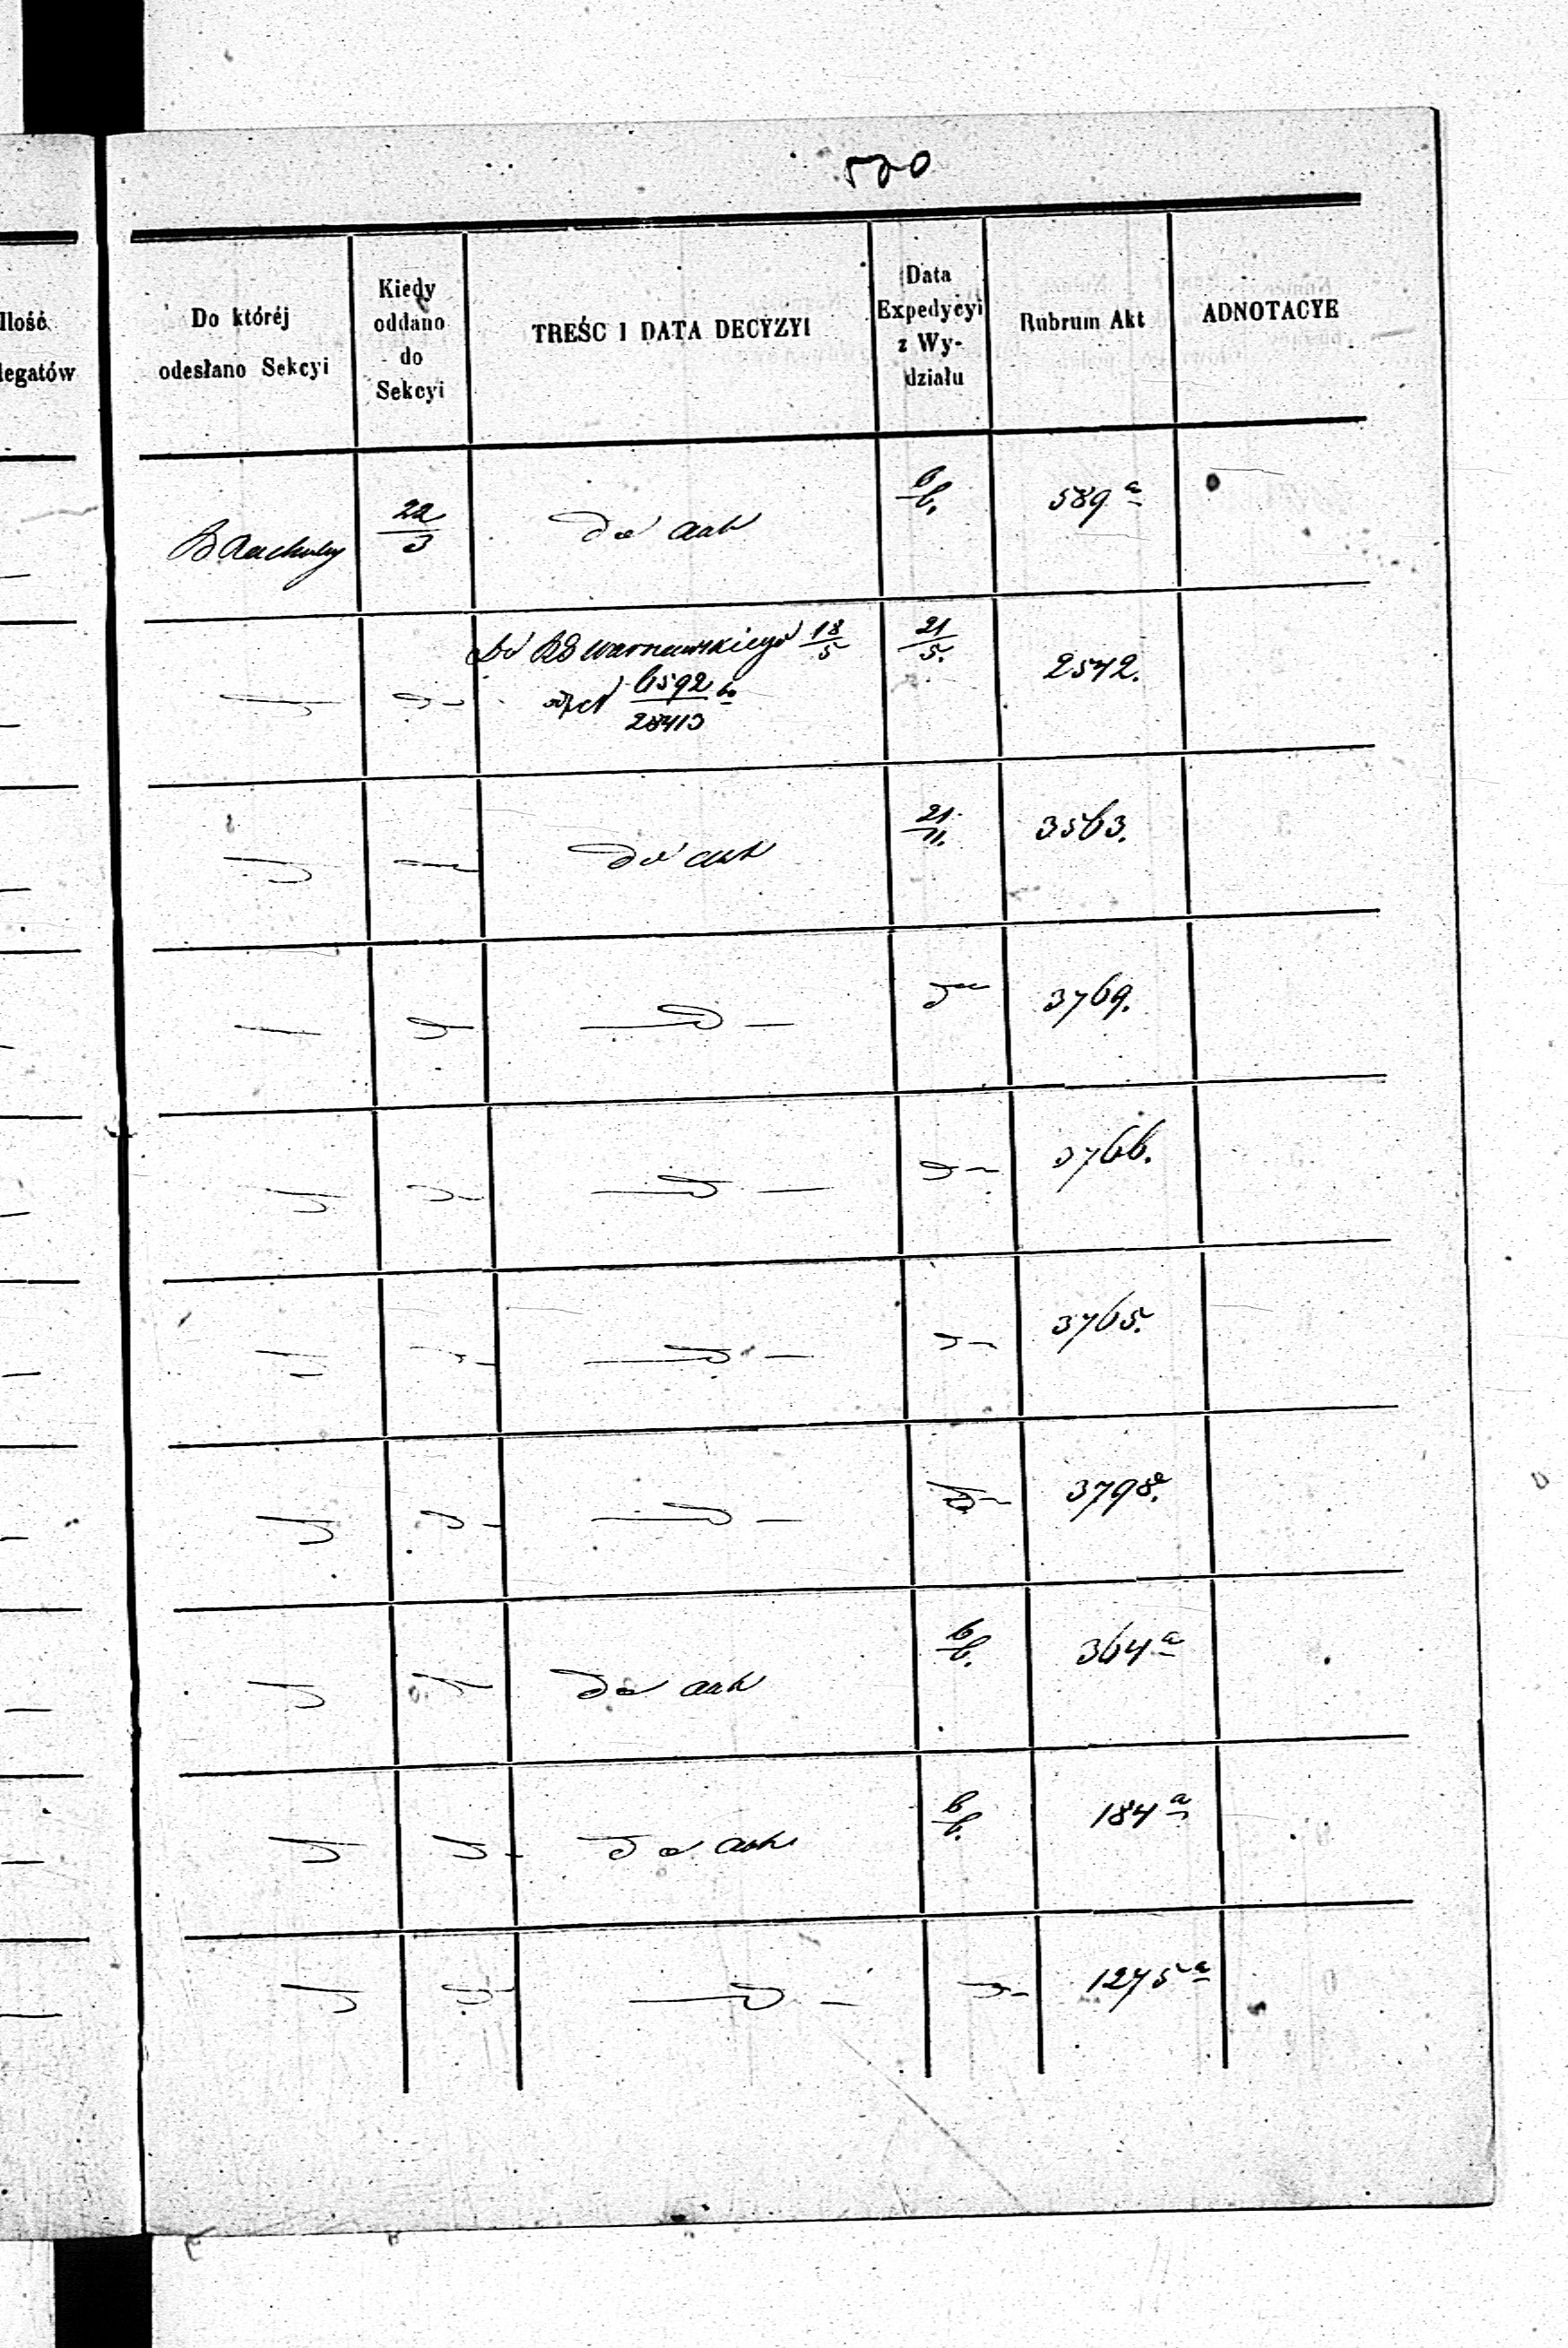 520
Ilość
legatów
Do któréj
odesłano Sekcyi
Kiedy
oddano
do
Sekcyi
TREŚC I DATA DECYZYI
Data
Expedycyi
z Wy-
działu
Rubrum Akt
ADNOTACYE
22/3
do akt
6/6.
589 a
Do RG Warszawskiego 18/5
6592/28413
21/5.
2542.
do akt
21/11.
3563.
3769.
3766.
3765.
3798a.
do akt
6/6.
364 a
do akt
6/6.
184 a
1275 a